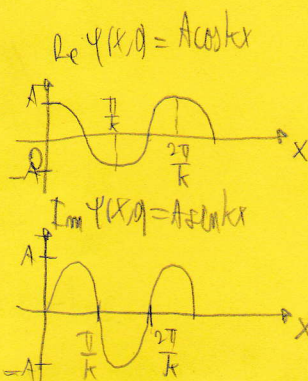 Re Ψ(x,0) = A cos kx
A
π/k
0
-A
2π/k
x
Im Ψ(x,0) = A sen kx
A
x
π/k
2π/k
-A